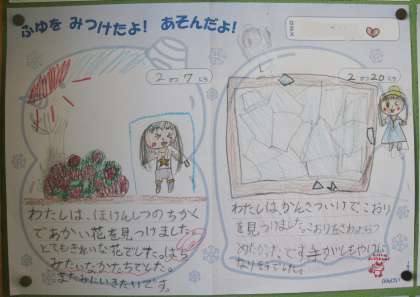 ふゆを みつけたよ! あそんだよ!
2がつ7にち
わたしは、ほけんしつのちかく
であかい花を見つけました。
とてもきれいな花でした。はち
みたいなかたちでした。
またみにいきたいです。
2がつ20にち
わたしは、かんさついけで、こおり
を見つけました。こおりをさわったら
つめたかったです。手がしもやけに
なりそうでした。